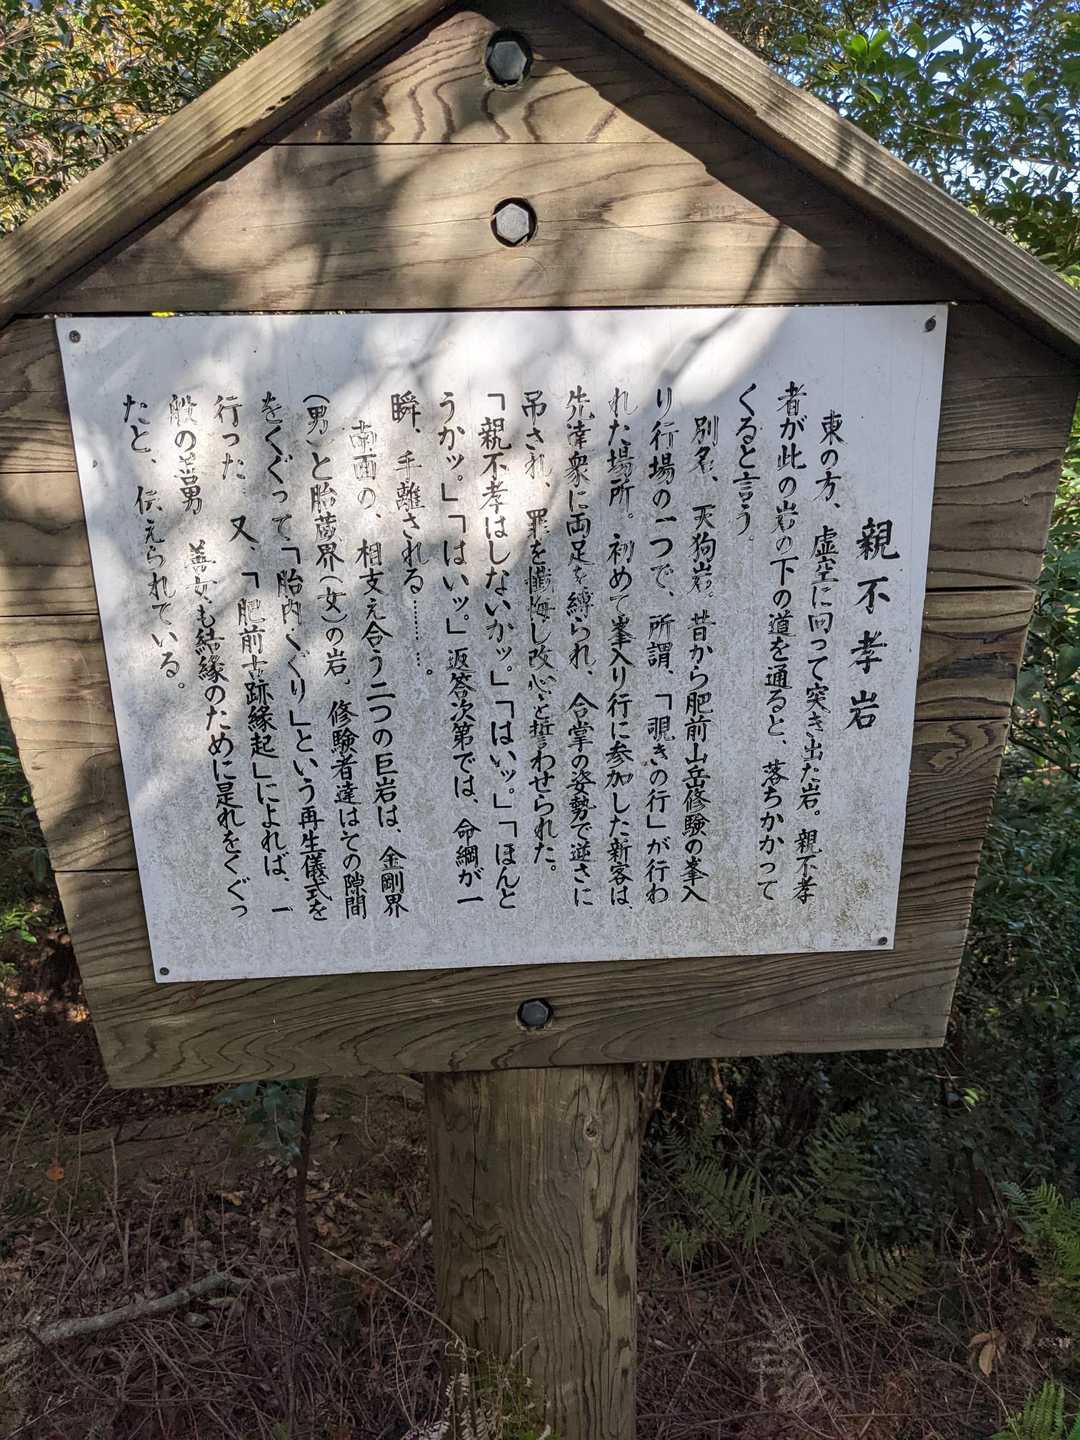 親不孝岩
東の方、虚空に向って突き出た岩。親不孝
者が此の岩の下の道を通ると、落ちかかって
くると言う。
別名、天狗岩。昔から肥前山岳修験の峯入
り行場の一つで、所謂、「覗きの行」が行わ
れた場所。初めて峯入り行に参加した新客は、
先達衆に両足を縛られ、合掌の姿勢で逆さに
吊され、罪を懺悔し改心を誓わせられた。
「親不孝はしないかッ。」「はいッ。」「ほんと
うかッ。」「はいッ。」返答次第では、命綱が一
瞬、手離される………。
南面の、相支え合う二つの巨岩は、金剛界
(男)と胎蔵界(女)の岩。修験者達はその隙間
をくぐって「胎内くぐり」という再生儀式を
行った。又、「肥前古跡縁起」によれば、一
般の善男善女も結縁のために是れをくぐっ
たと、伝えられている。